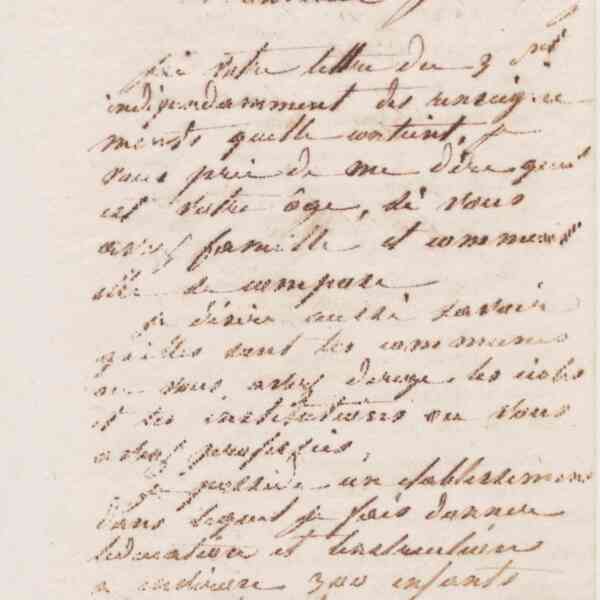 Monsieur
J'ai votre lettre du 3 Ct
indépendamment des renseigne
ments quelle contient, je
vous prie de me dire quel
est votre âge, si vous
avez famille et comment
elle se compose
je désire aussi savoir
quelles sont les communes
ou vous avez dirigé les écoles
et les institutions ou vous
avez professés,
je possède un établissement
dans lequel je fais donner
l'éducation et l'instruction
a environ 300 enfants